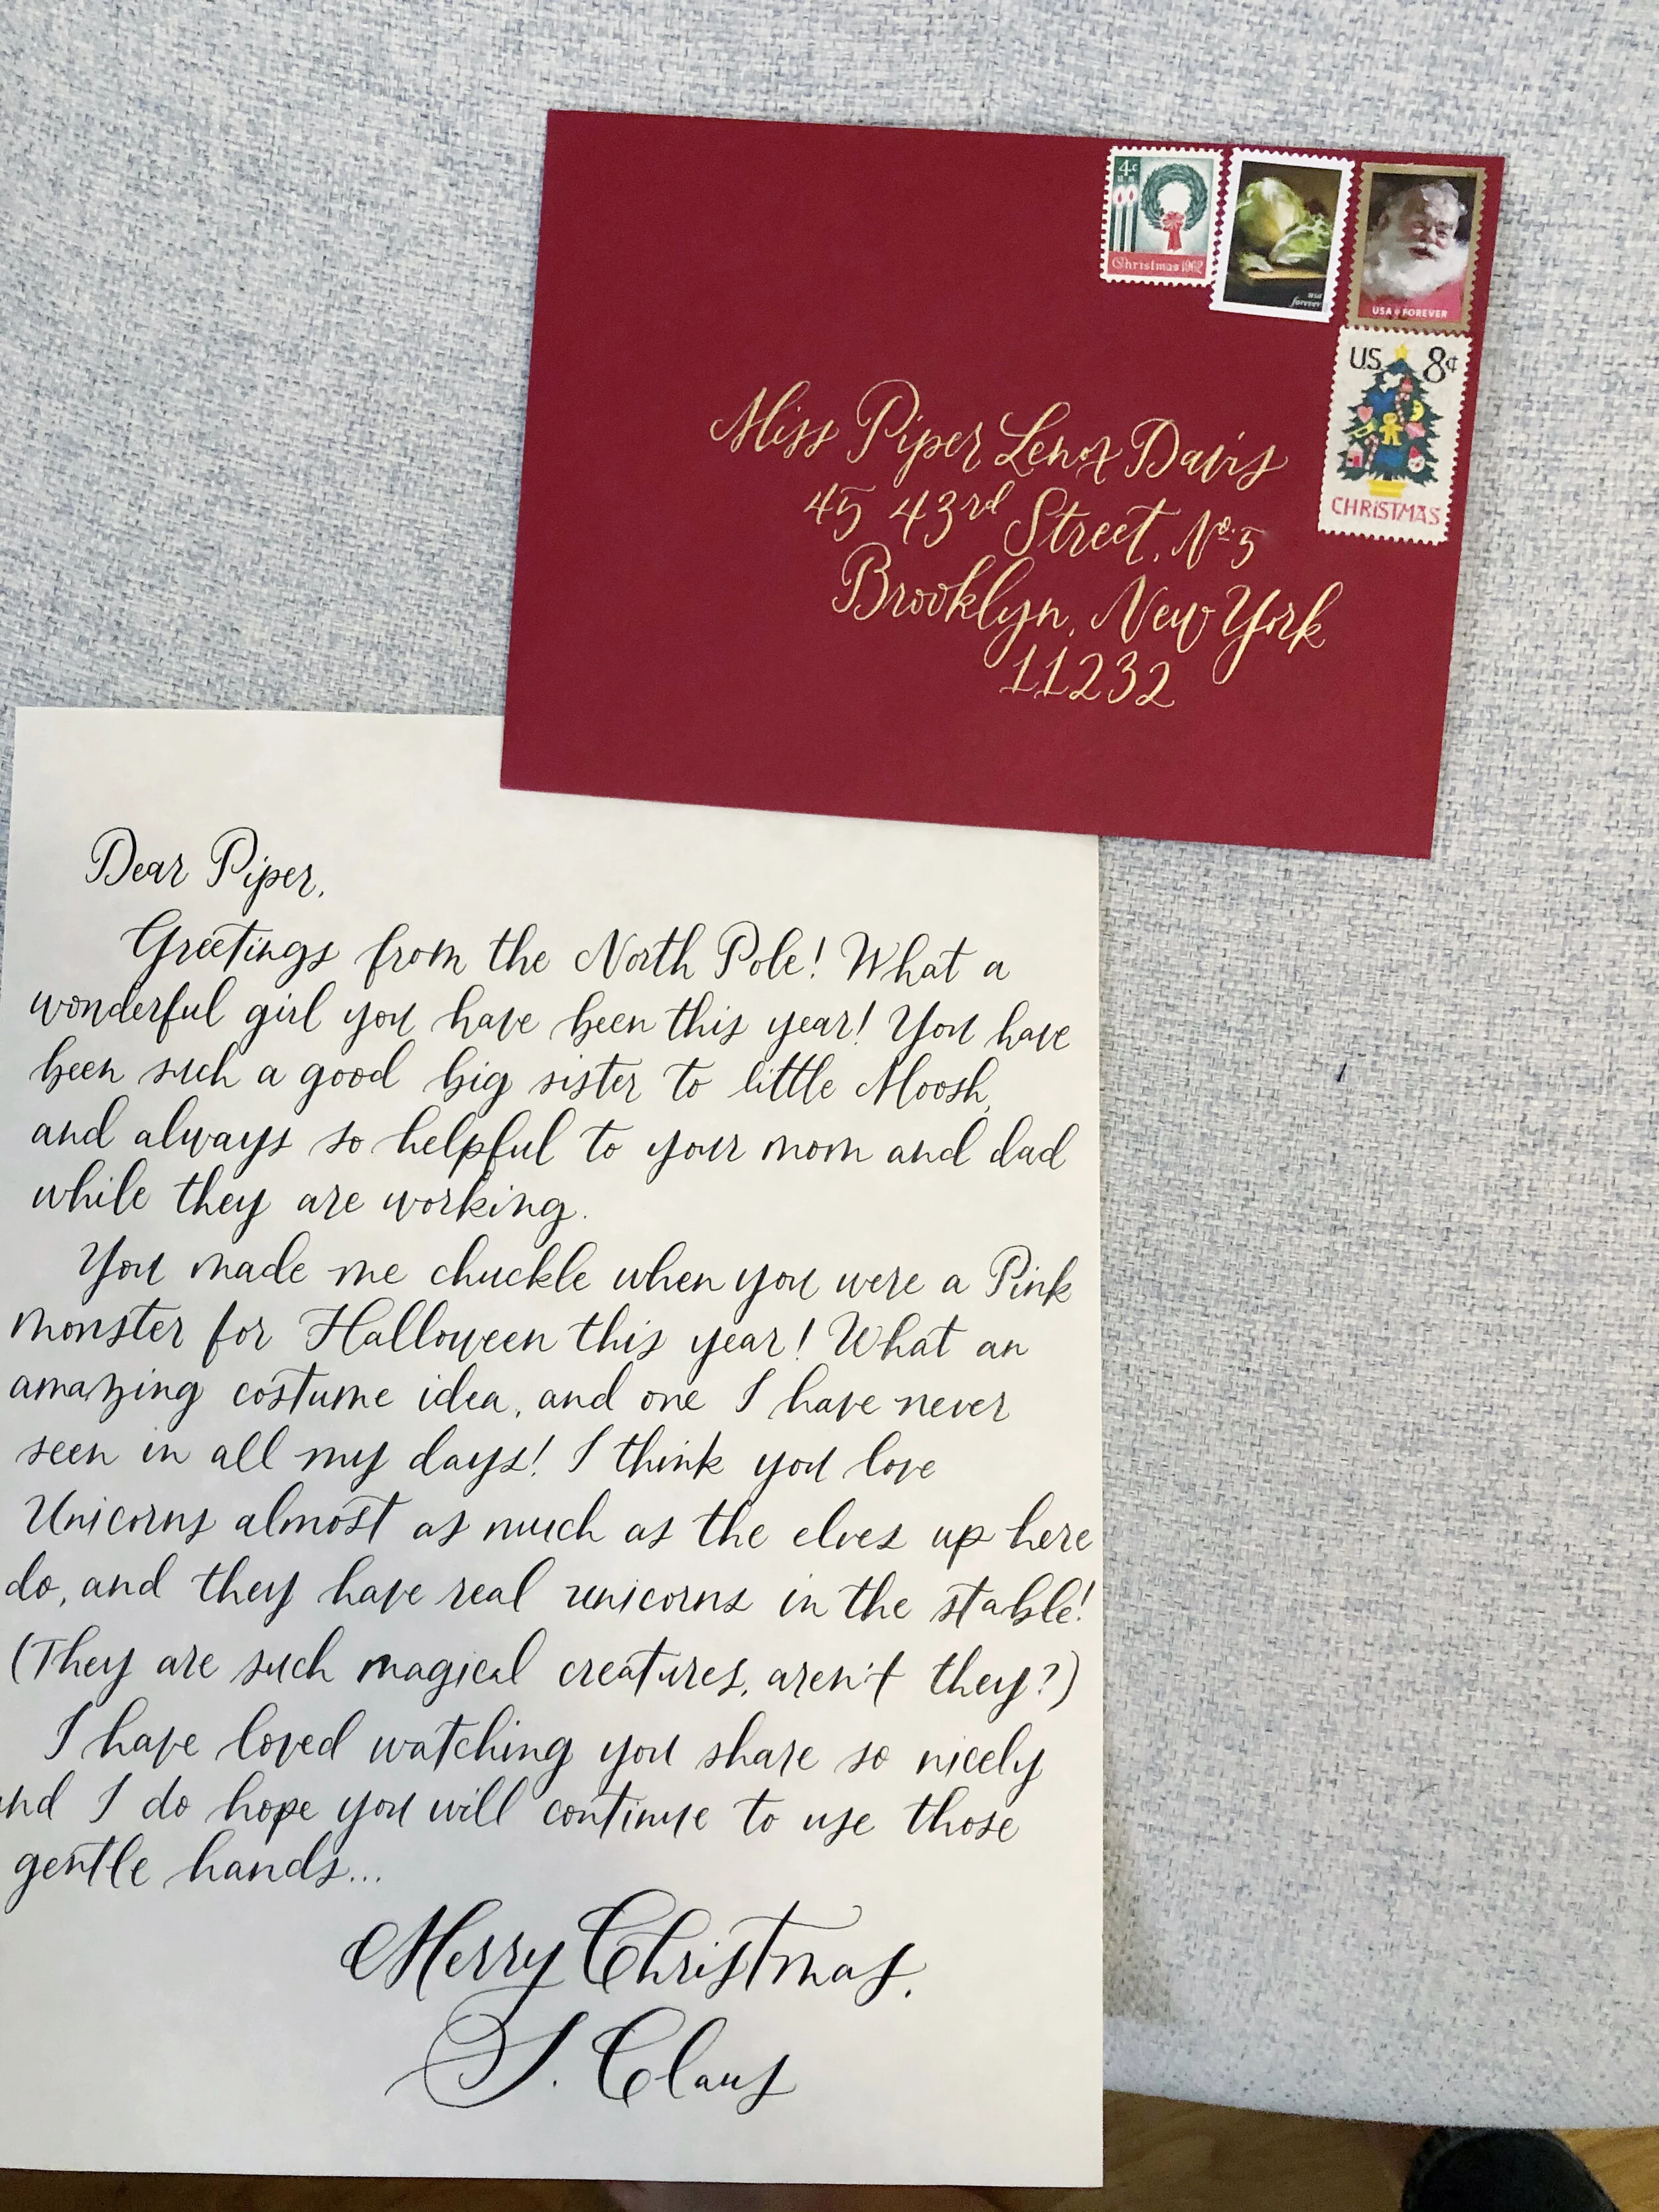 4¢
U.S.
Christmas 1962
usa
forever
USA FOREVER
U.S. 8¢
CHRISTMAS
Miss Piper Lenox Davis
45 43rd Street, No. 5
Brooklyn, New York
11232
Dear Piper,
Greetings from the North Pole! What a
wonderful girl you have been this year! You have
been such a good big sister to little Moosh,
and always so helpful to your mom and dad
while they are working.
You made me chuckle when you were a Pink
monster for Halloween this year! What an
amazing costume idea, and one I have never
seen in all my days! I think you love
Unicorns almost as much as the elves up here
do, and they have real unicorns in the stable!
(They are such magical creatures, aren't they?)
I have loved watching you share so nicely
and I do hope you will continue to use those
gentle hands...
Merry Christmas,
S. Claus